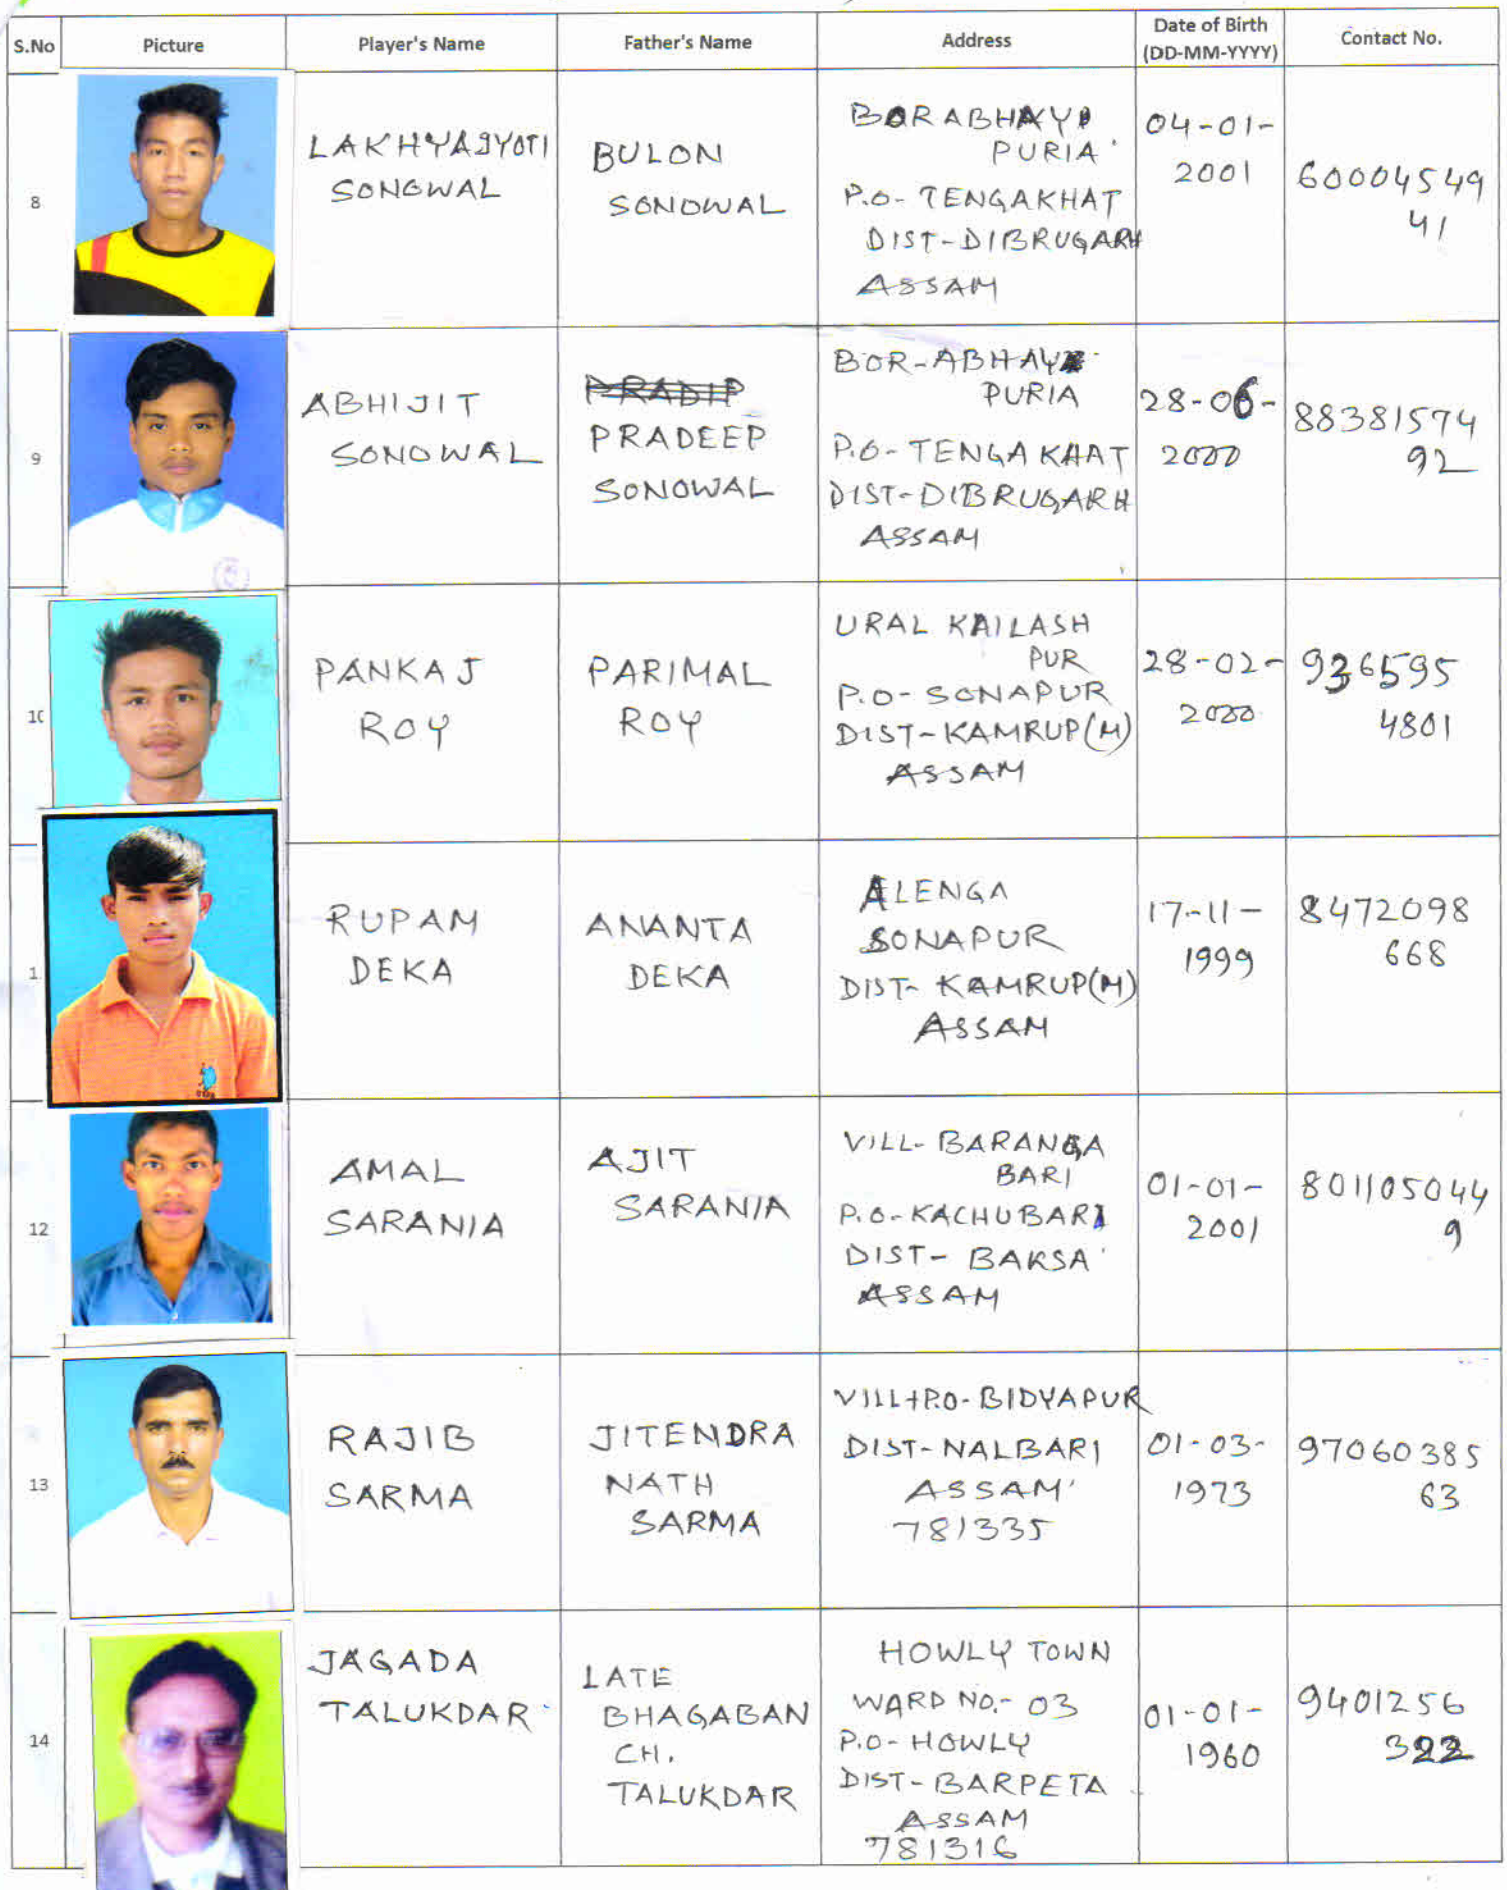 S.No Picture Player's Name Father's Name Address Date of Birth (DD-MM-YYYY) Contact No.
8
LAKHYAJYOTI
SONOWAL
BULON
SONOWAL
BORABHAYA
PURIA
P.O- TENGAKHAT
DIST-DIBRUGARH
ASSAM
04-01-
2001
60004549
41
9
ABHIJIT
SONOWAL
PRADIP
PRADEEP
SONOWAL
BOR-ABHAY
PURIA
P.O- TENGAKHAT
DIST-DIBRUGARH
ASSAM
28-06-
2000
88381574
92
10
PANKAJ
ROY
PARIMAL
ROY
URAL KAILASH
PUR
P.O- SONAPUR
DIST-KAMRUP(M)
ASSAM
28-02-
2000
936595
4801
1
RUPAM
DEKA
ANANTA
DEKA
ALENGA
SONAPUR
DIST- KAMRUP(M)
ASSAM
17-11-
1999
8472098
668
12
AMAL
SARANIA
AJIT
SARANIA
VILL- BARANGA
BARI
P.O-KACHUBARI
DIST- BAKSA
ASSAM
01-01-
2001
801105044
9
13
RAJIB
SARMA
JITENDRA
NATH
SARMA
VILL+P.O-BIDYAPUR
DIST-NALBARI
ASSAM
781335
01-03-
1973
97060385
63
14
JAGADA
TALUKDAR
LATE
BHAGABAN
CH.
TALUKDAR
HOWLY TOWN
WARD NO.- 03
P.O- HOWLY
DIST-BARPETA
ASSAM
781316
01-01-
1960
9401256
322